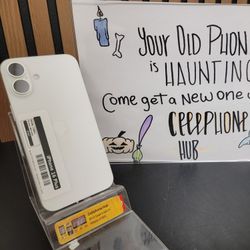 Your Old Phone
is HAUNTIN
Come get a New one
CELLPHONE
HUB